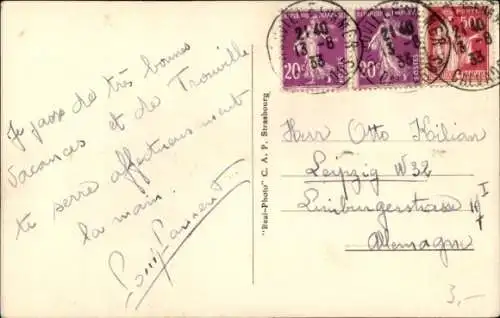 Je passe de très bonnes
vacances et de Trouville
te serre affectueusement
la main.
"Real-Photo" C. A. P. Strasbourg
20c
POSTES
20c
50c
21 40
13 - 8
33
21 40
13 - 8
33
Herr Otto Kilian
Leipzig W 32
Limburgerstrasse
Allemagne
3,-